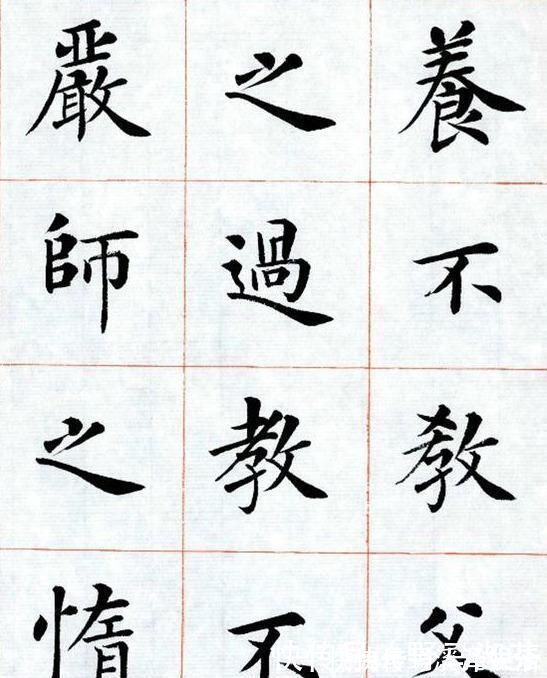 養不教父
之過教不
嚴師之惰